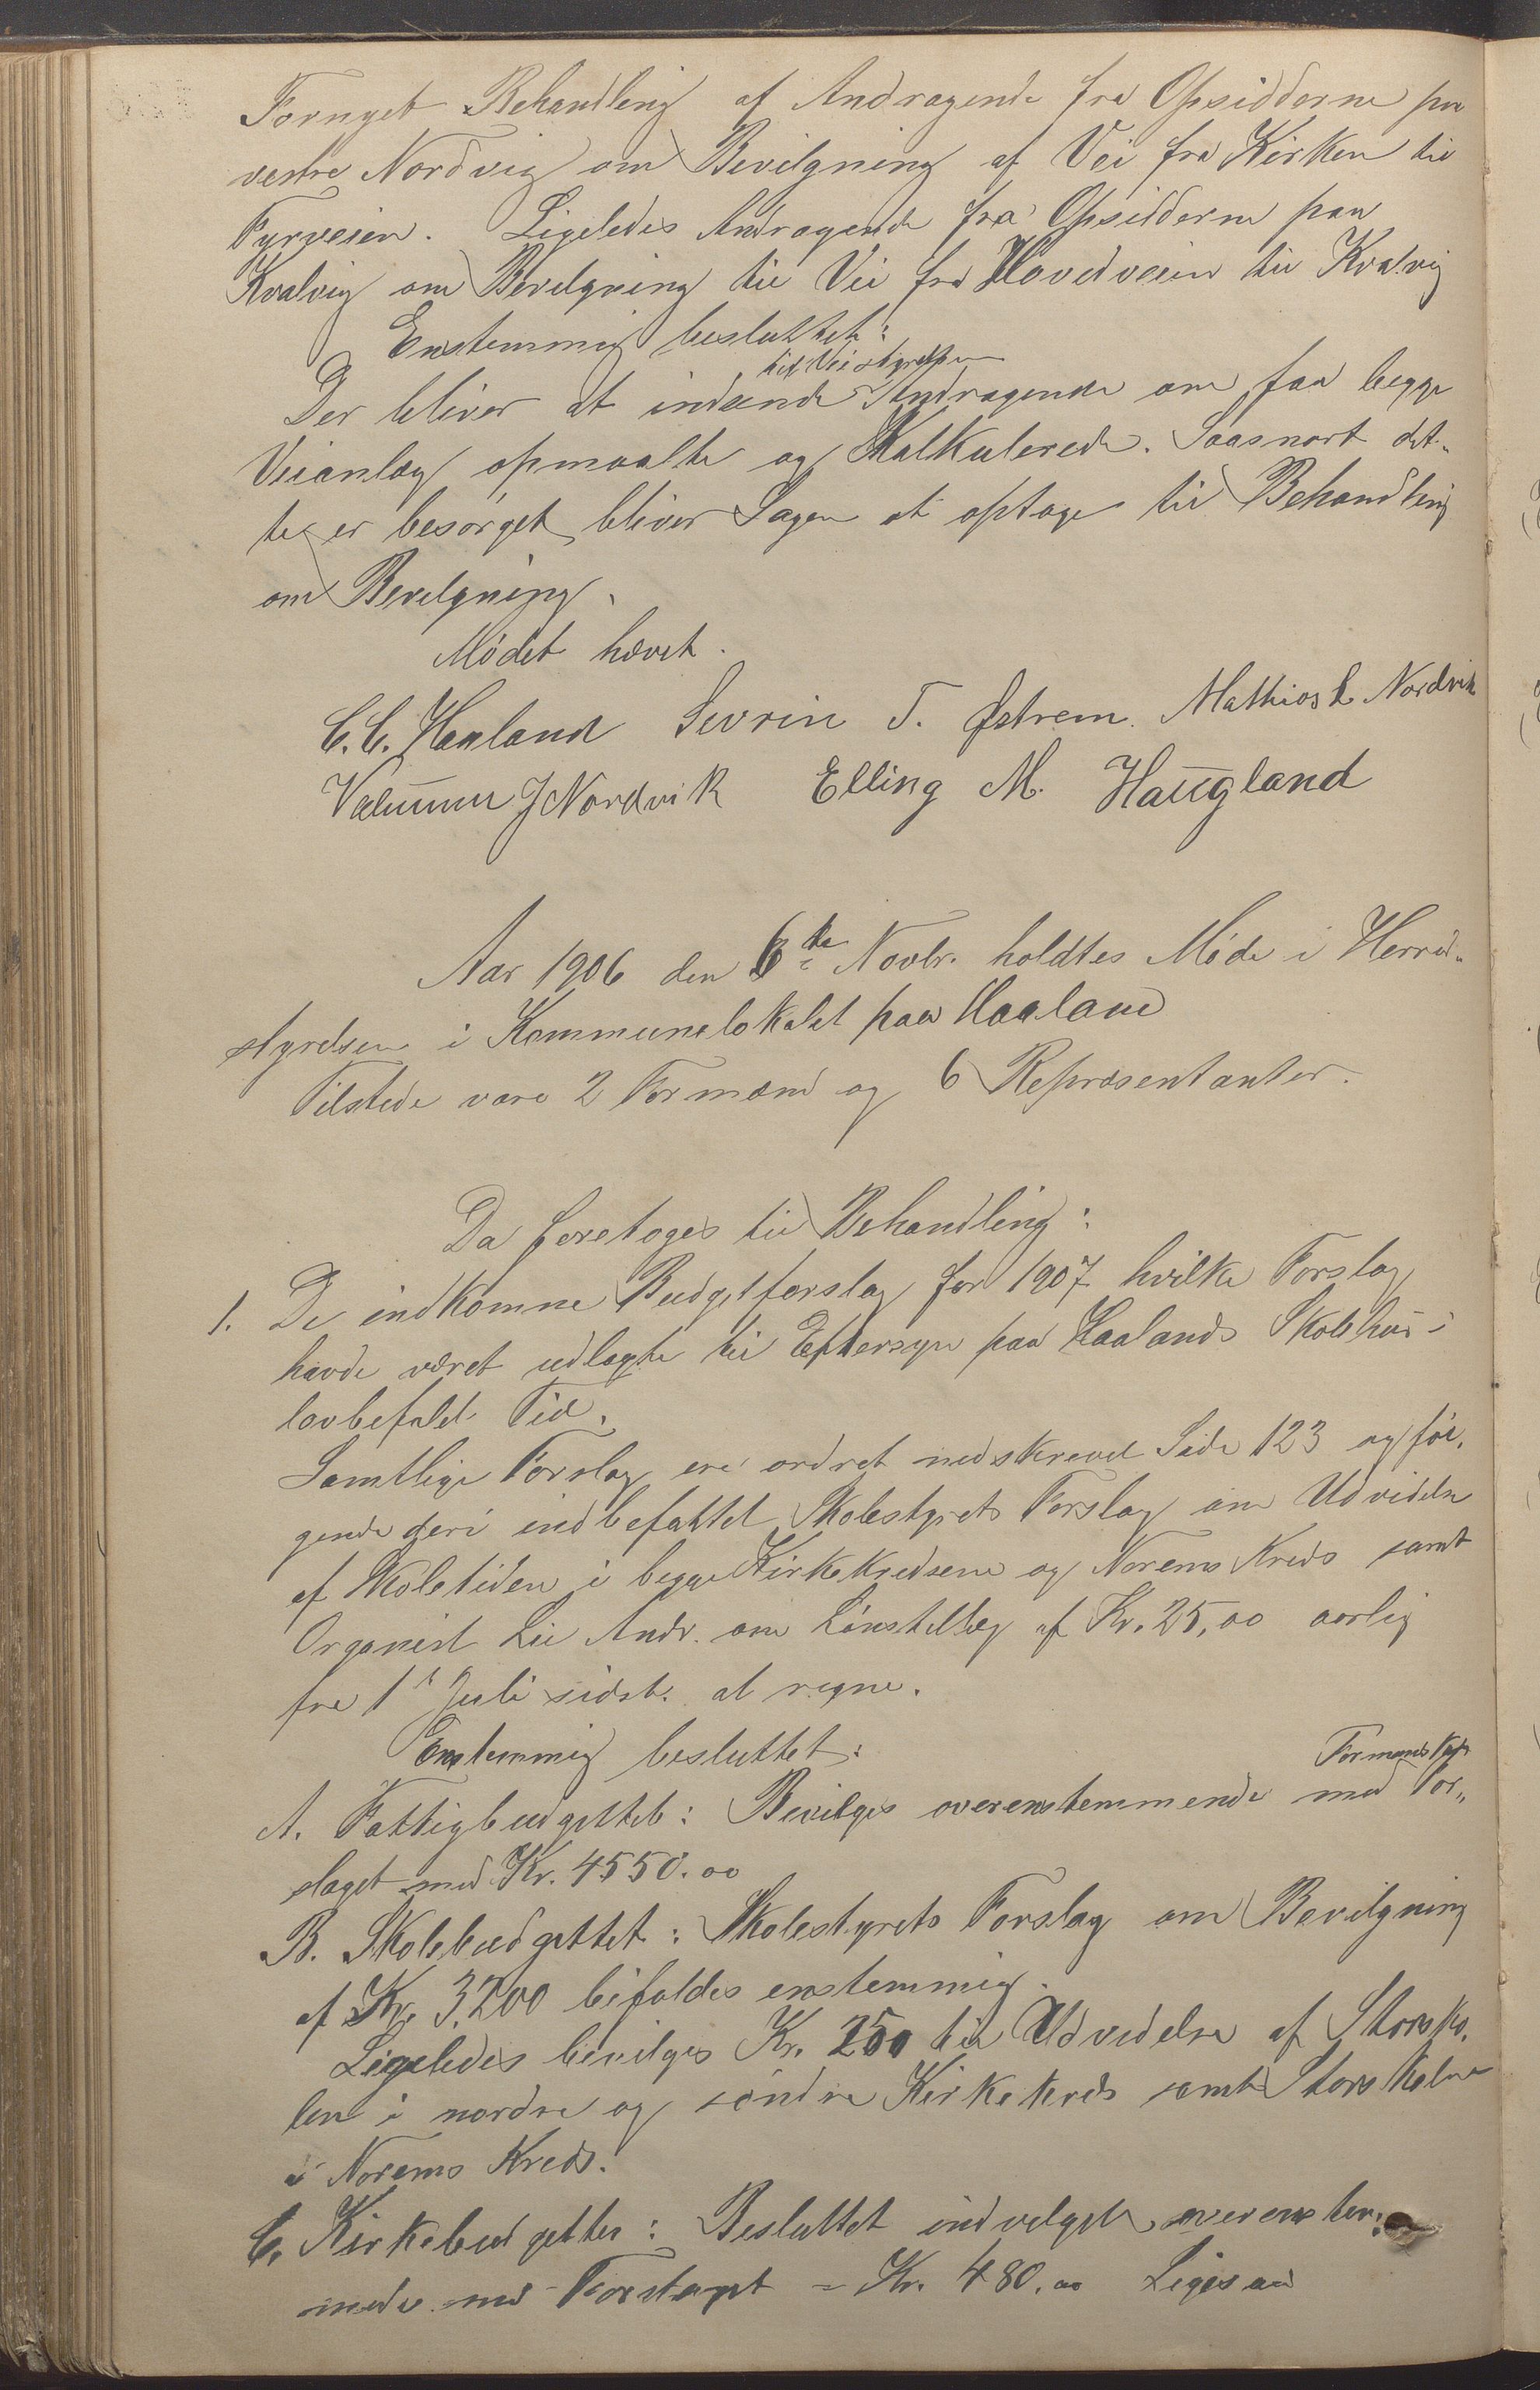 Fornyet Behandling af Andragende fra Opsidderne paa
vestre Nordvig om Bevilgning af Vei fra Kirken til
Fyrveien. Ligeledes Andragende fra Opsidderne paa
Kvalvig om Bevilgning til Vei fra Hovedveien til Kvalvig
Enstemmig besluttet:
til Veistyrelsen
Der bliver at indsende Andragende om faa begge
Veianlæg opmaalte og Kalkulerede. Saasnart det-
te er besørget bliver Sagen at optage til Behandling
om Bevilgning.
Mødet hævet.
C. C. Haaland Sevrin T. Østrem. Mathias L Nordvik
J Nordvik Elling M. Haugland
Aar 1906 den 6te Novbr. holdtes Møde i Herred-
styrelsen i Kommunelokalet paa Haaland
Tilstede vare 2 Formænd og 6 Repræsentanter.
Da foretoges til Behandling:
1. De indkomne Budgetforslag for 1907 hvilke Forslag
havde været udlagte til Eftersyn paa Haalands Skolehus i
lovbefalet Tid.
Samtlige Forslag ere ordret nedskrevet Side 123 og føl-
gende deri indbefattet Skolestyrets Forslag om Udvidelse
af Skoletiden i begge Kirkekredsene og Norems Kreds samt
Organist Lie Andr. om Lønstillæg af Kr. 25,00 aarlig
fra 1ste Juli sidstl. at regne.
Enstemmig besluttet:
Formandskap
A. Fattigbudgettet: Bevilges overenstemmende med For-
slaget med Kr. 4550.00
B. Skolebudgettet: Skolestyrets Forslag om Bevilgning
af Kr. 3,200 bifaldes enstemmig.
Ligeledes bevilges Kr. 250 til Udvidelse af Storsko-
len i nordre og søndre Kirkekreds samt Storskolen
i Norems Kreds.
C. Kirkebudgettet: Besluttet indvilget overenstem-
mede med Forslaget = Kr. 480.00 Ligesaa